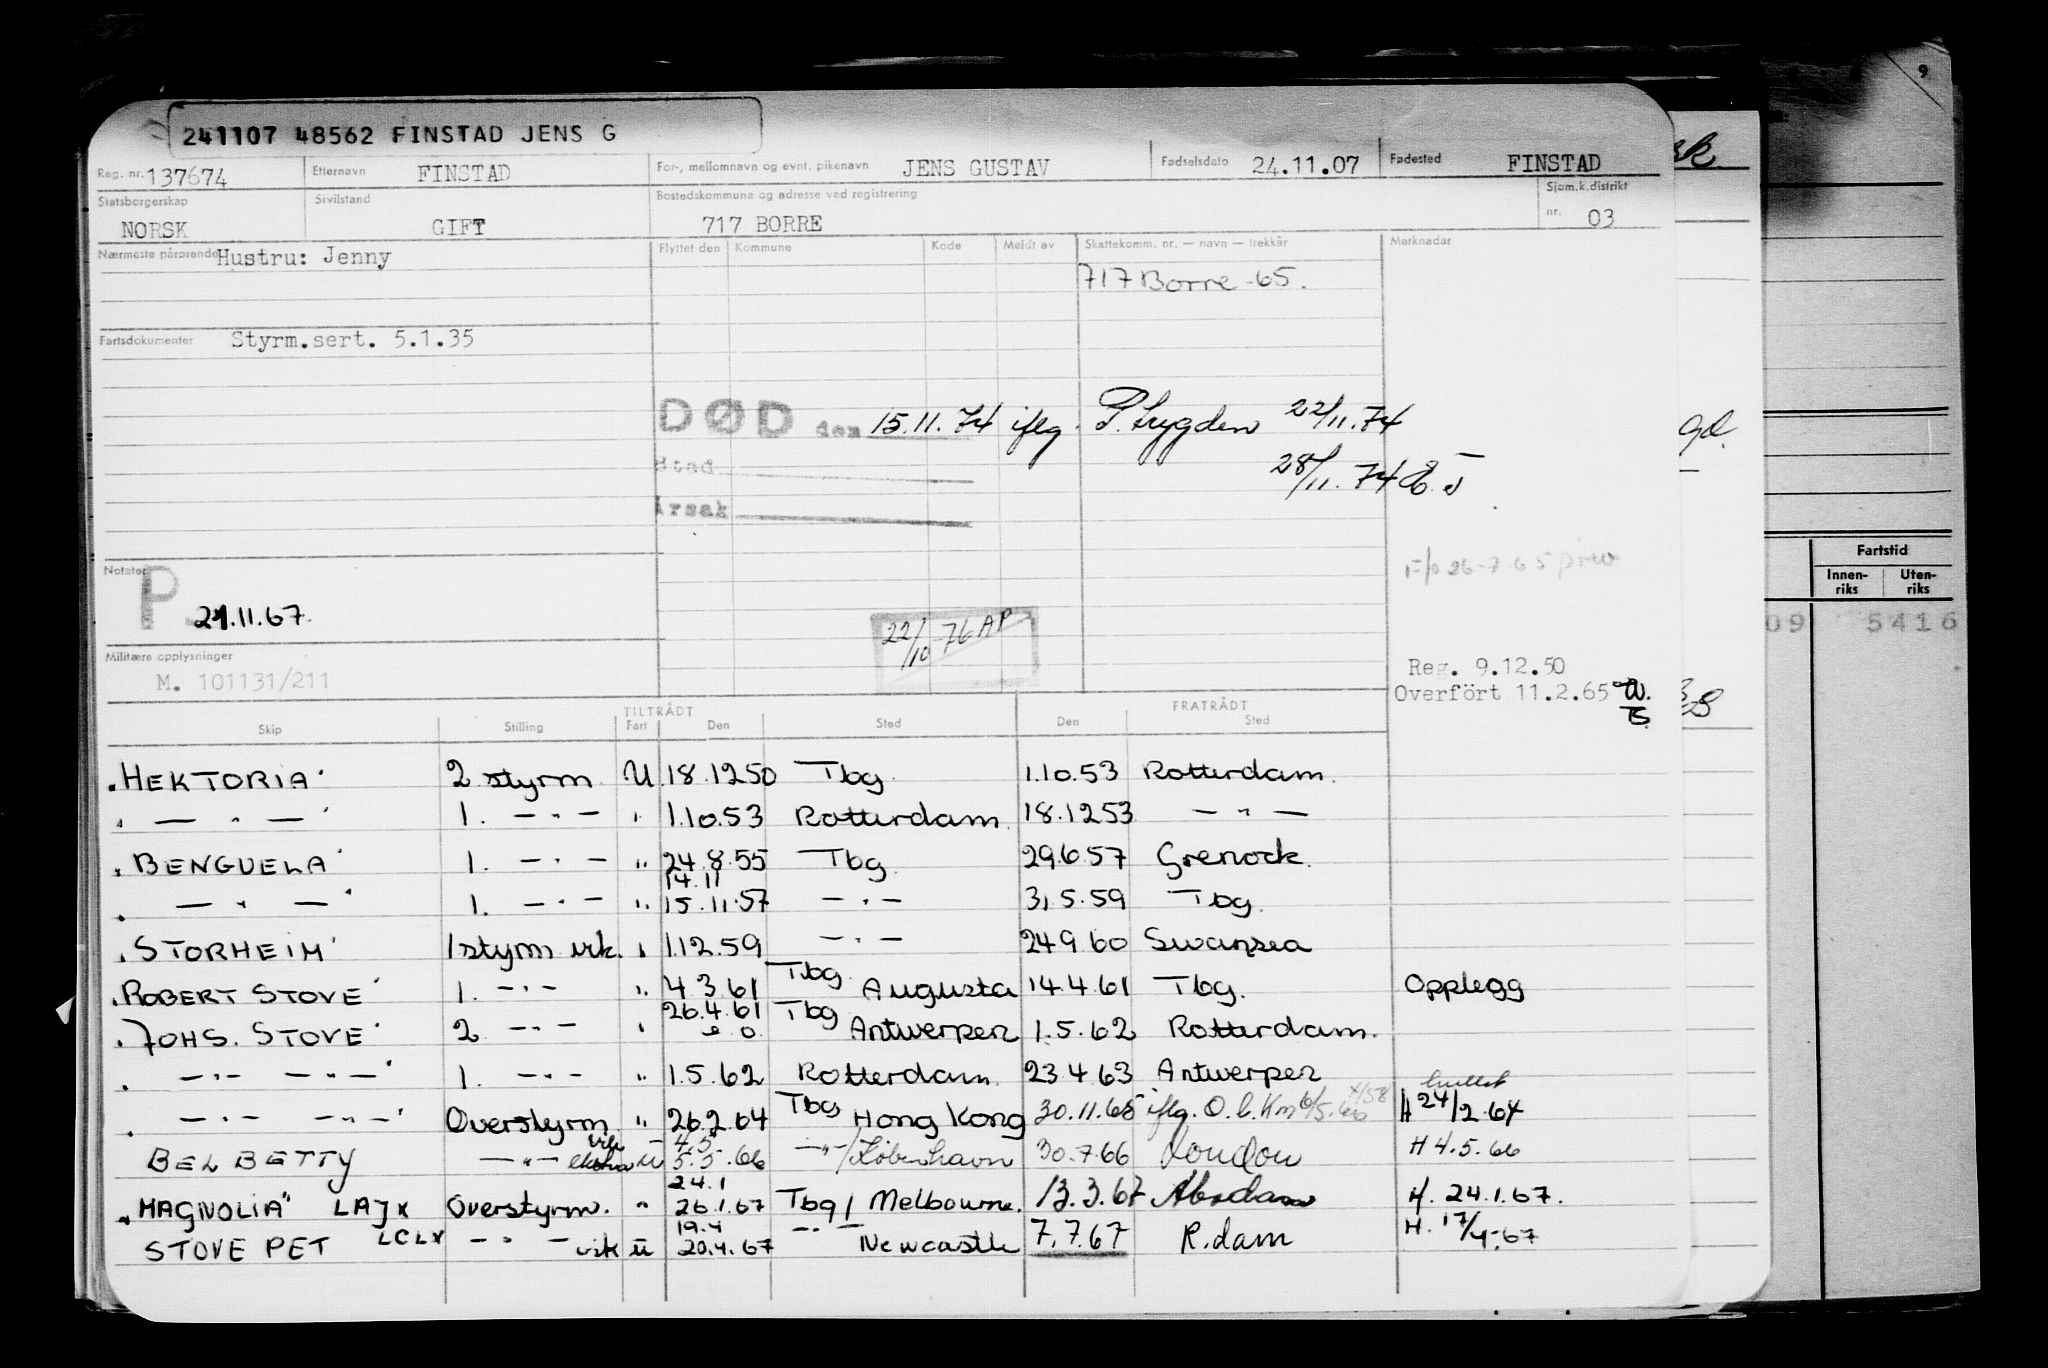 241107 48562 FINSTAD JENS G
Reg. nr. 137674 Etternavn FINSTAD For-, mellomnavn og evnt. pikenavn JENS GUSTAV Fødselsdato 24.11.07 Fødested FINSTAD
Statsborgerskap NORSK Sivilstand GIFT Bostedskommune og adresse ved registrering 717 BORRE Sjøm.k.distrikt nr. 03
Nærmeste pårørende Hustru: Jenny Flyttet den Kommune Kode Meldt av Skattekomm. nr. — navn — trekkår Merknader
717 Borre -65.
Fartsdokumenter Styrm.sert. 5.1.35
DØD den 15.11.74 iflg. 22/11.74
Sted 28/11.74
Årsak
F/o 26-7-65
Notater P 21.11.67.
22/10-76 AP
Militære opplysninger
M. 101131/211
Reg. 9.12.50
Overført 11.2.65
Skip Stilling TILTRÅDT Fart Den Sted FRATRÅDT Den Sted
"HEKTORIA" 2 styrm. U 18.1250 Tbg. 1.10.53 Rotterdam.
" — " — " 1. — " — " 1.10.53 Rotterdam. 18.1253 — " —
"BENGUELA" 1. — " — " 24.8.55 Tbg. 29.6.57 Grenock.
14.11
" — " — " 1. — " — " 15.11.57 — " — 31.5.59 Tbg.
"STORHEIM" 1 styrm vik. " 1.12.59 — " — 24.9.60 Swansea
"ROBERT STOVE" 1. — " — " 4.3.61 Tbg. Augusta 14.4.61 Tbg. Opplegg
"JOHS. STOVE" 2 — " — " 26.4.61 Tbg Antwerpen 1.5.62 Rotterdam.
" — " — — " — " 1. — " — " 1.5.62 Rotterdam. 23.4.63 Antwerpen
" — " — — " — " Overstyrm. " 26.2.64 Tbg Hong Kong 30.11.65 iflg. H 24/2.64
4.5
BEL BETTY — " — vik ekstra U 5.5.66 — " —/København 30.7.66 London H 4.5.66
24.1
"MAGNOLIA" LAJX Overstyrm. " 26.1.67 Tbg/Melbourne. 13.3.67 H. 24.1.67.
19.4
STOVE PET LCLX — " — vik U 20.4.67 — " — Newcastle 7.7.67 R.dam H. 17/4-67
9
Fartstid
Innenriks Utenriks
09 5416